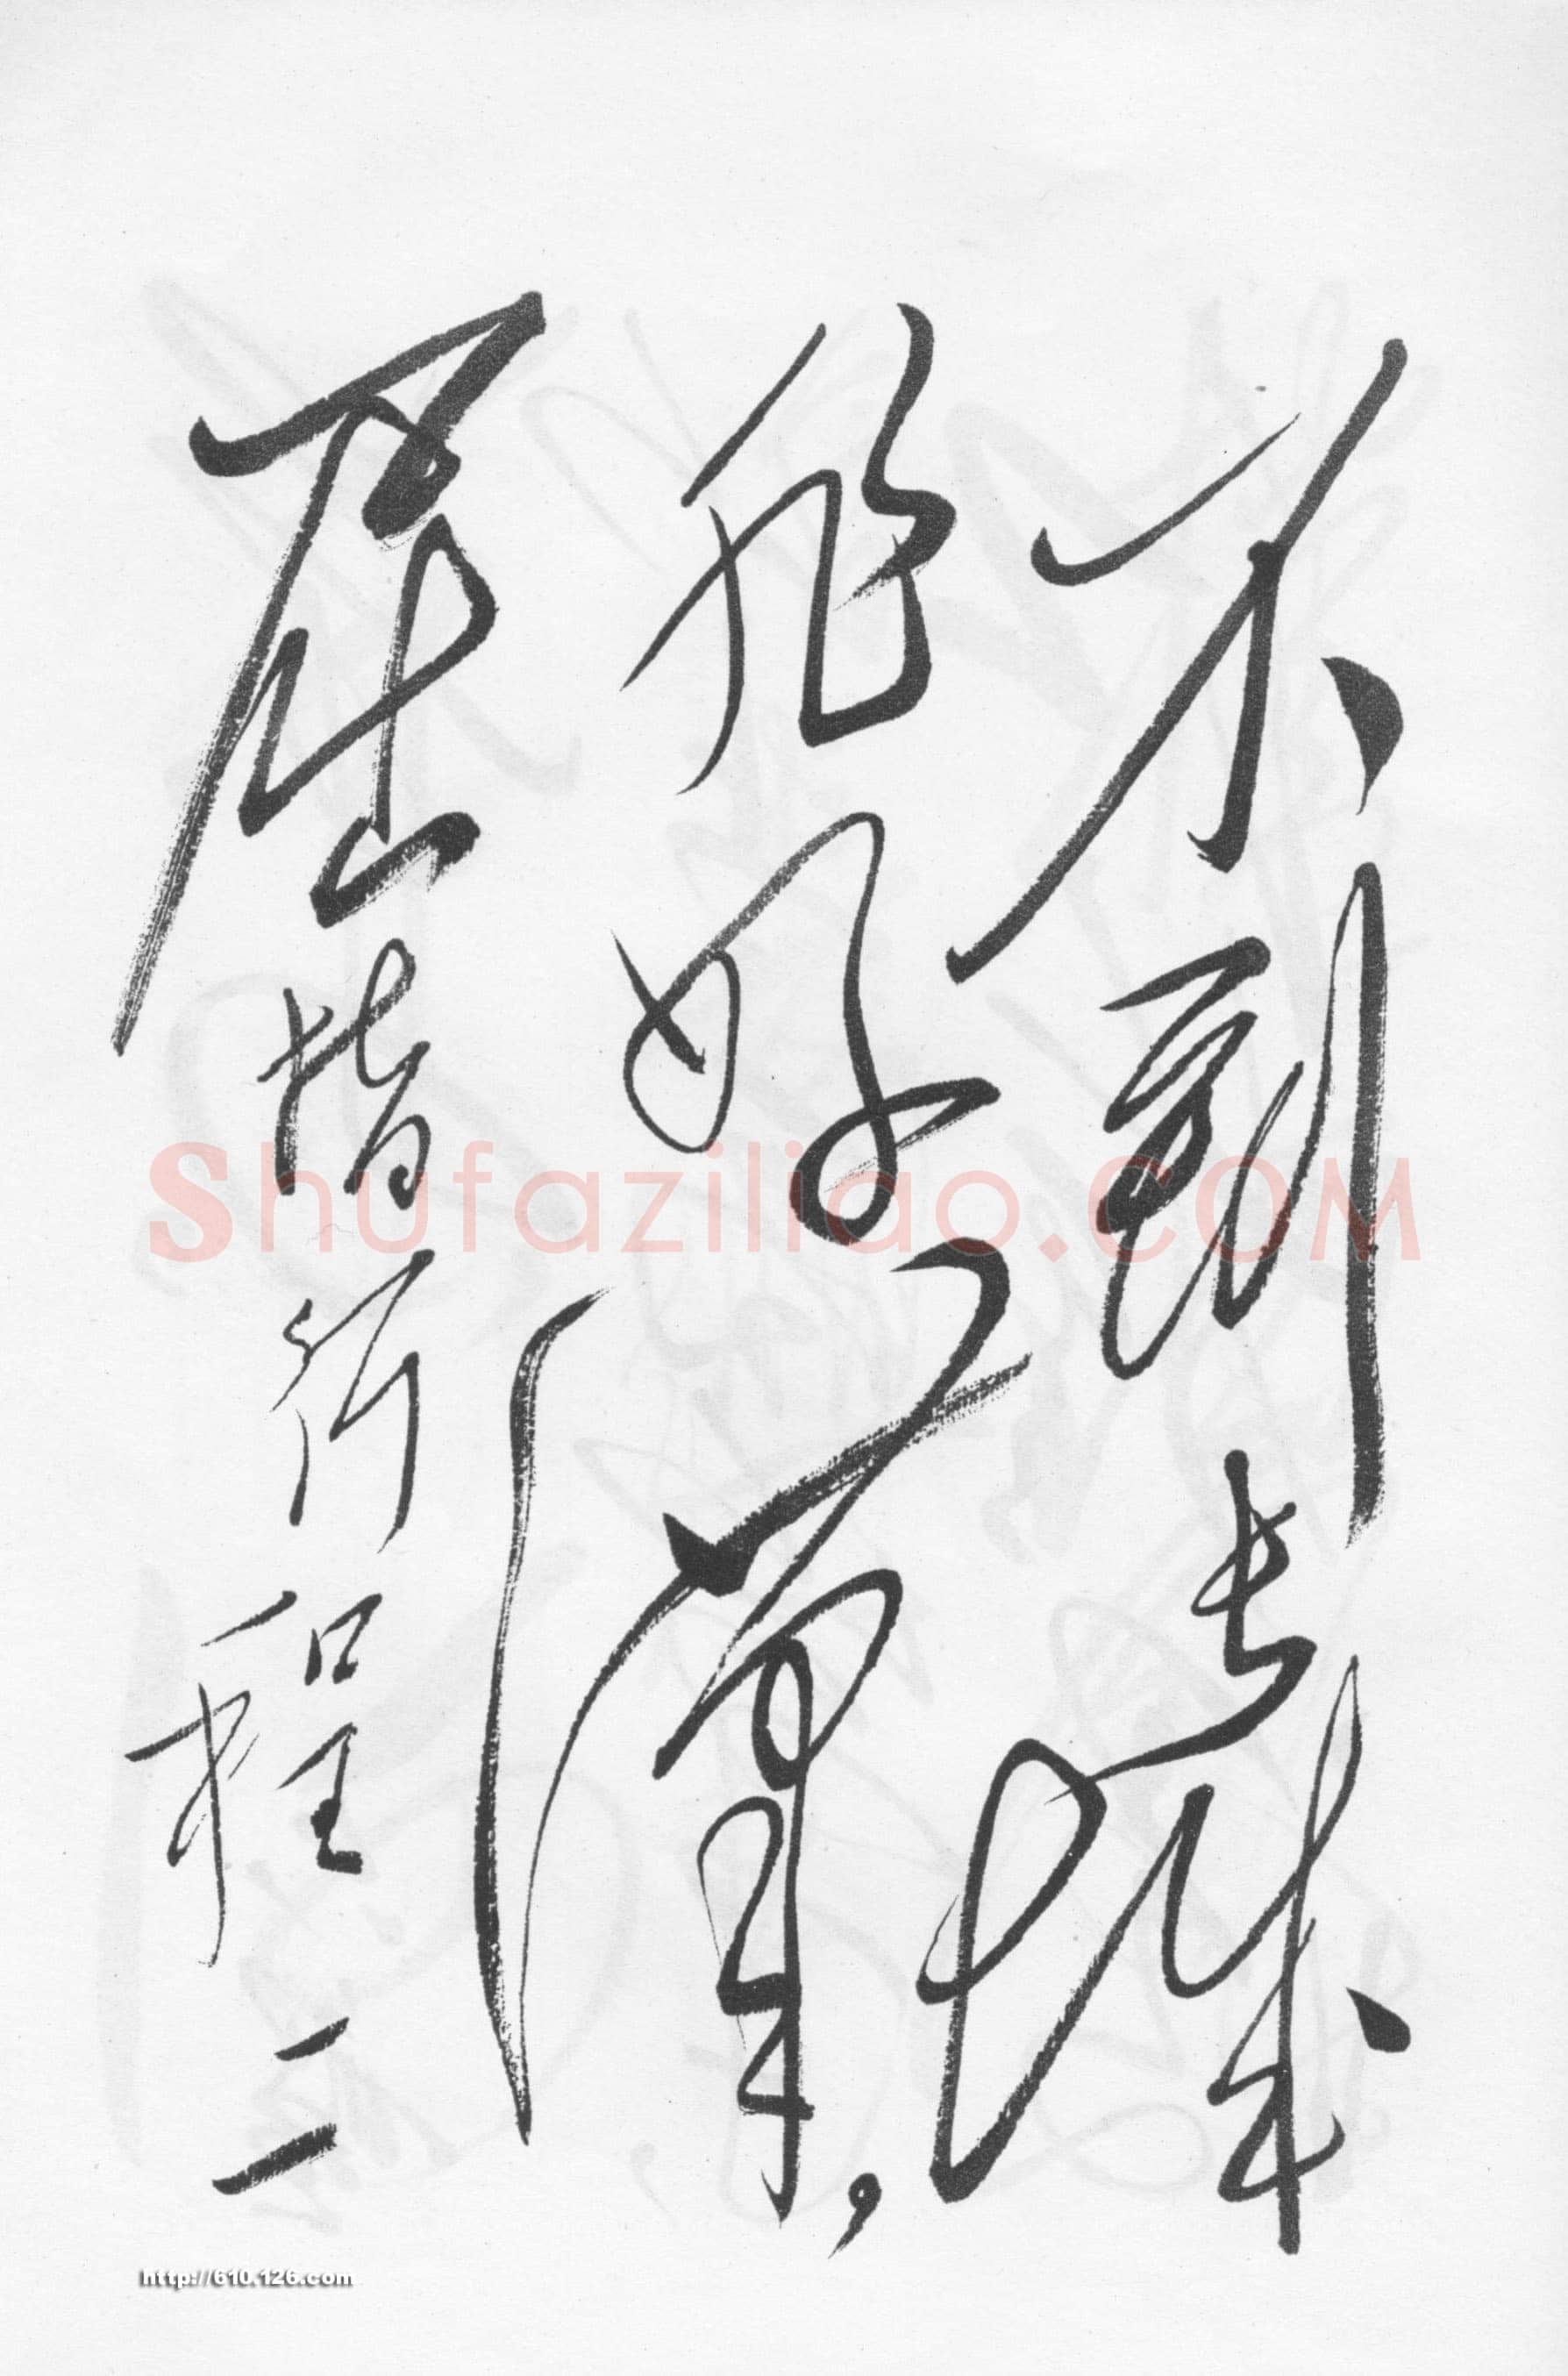 不到长城
非好汉，
屈指行程二
Shufaziliao.COM
http://610.126.com